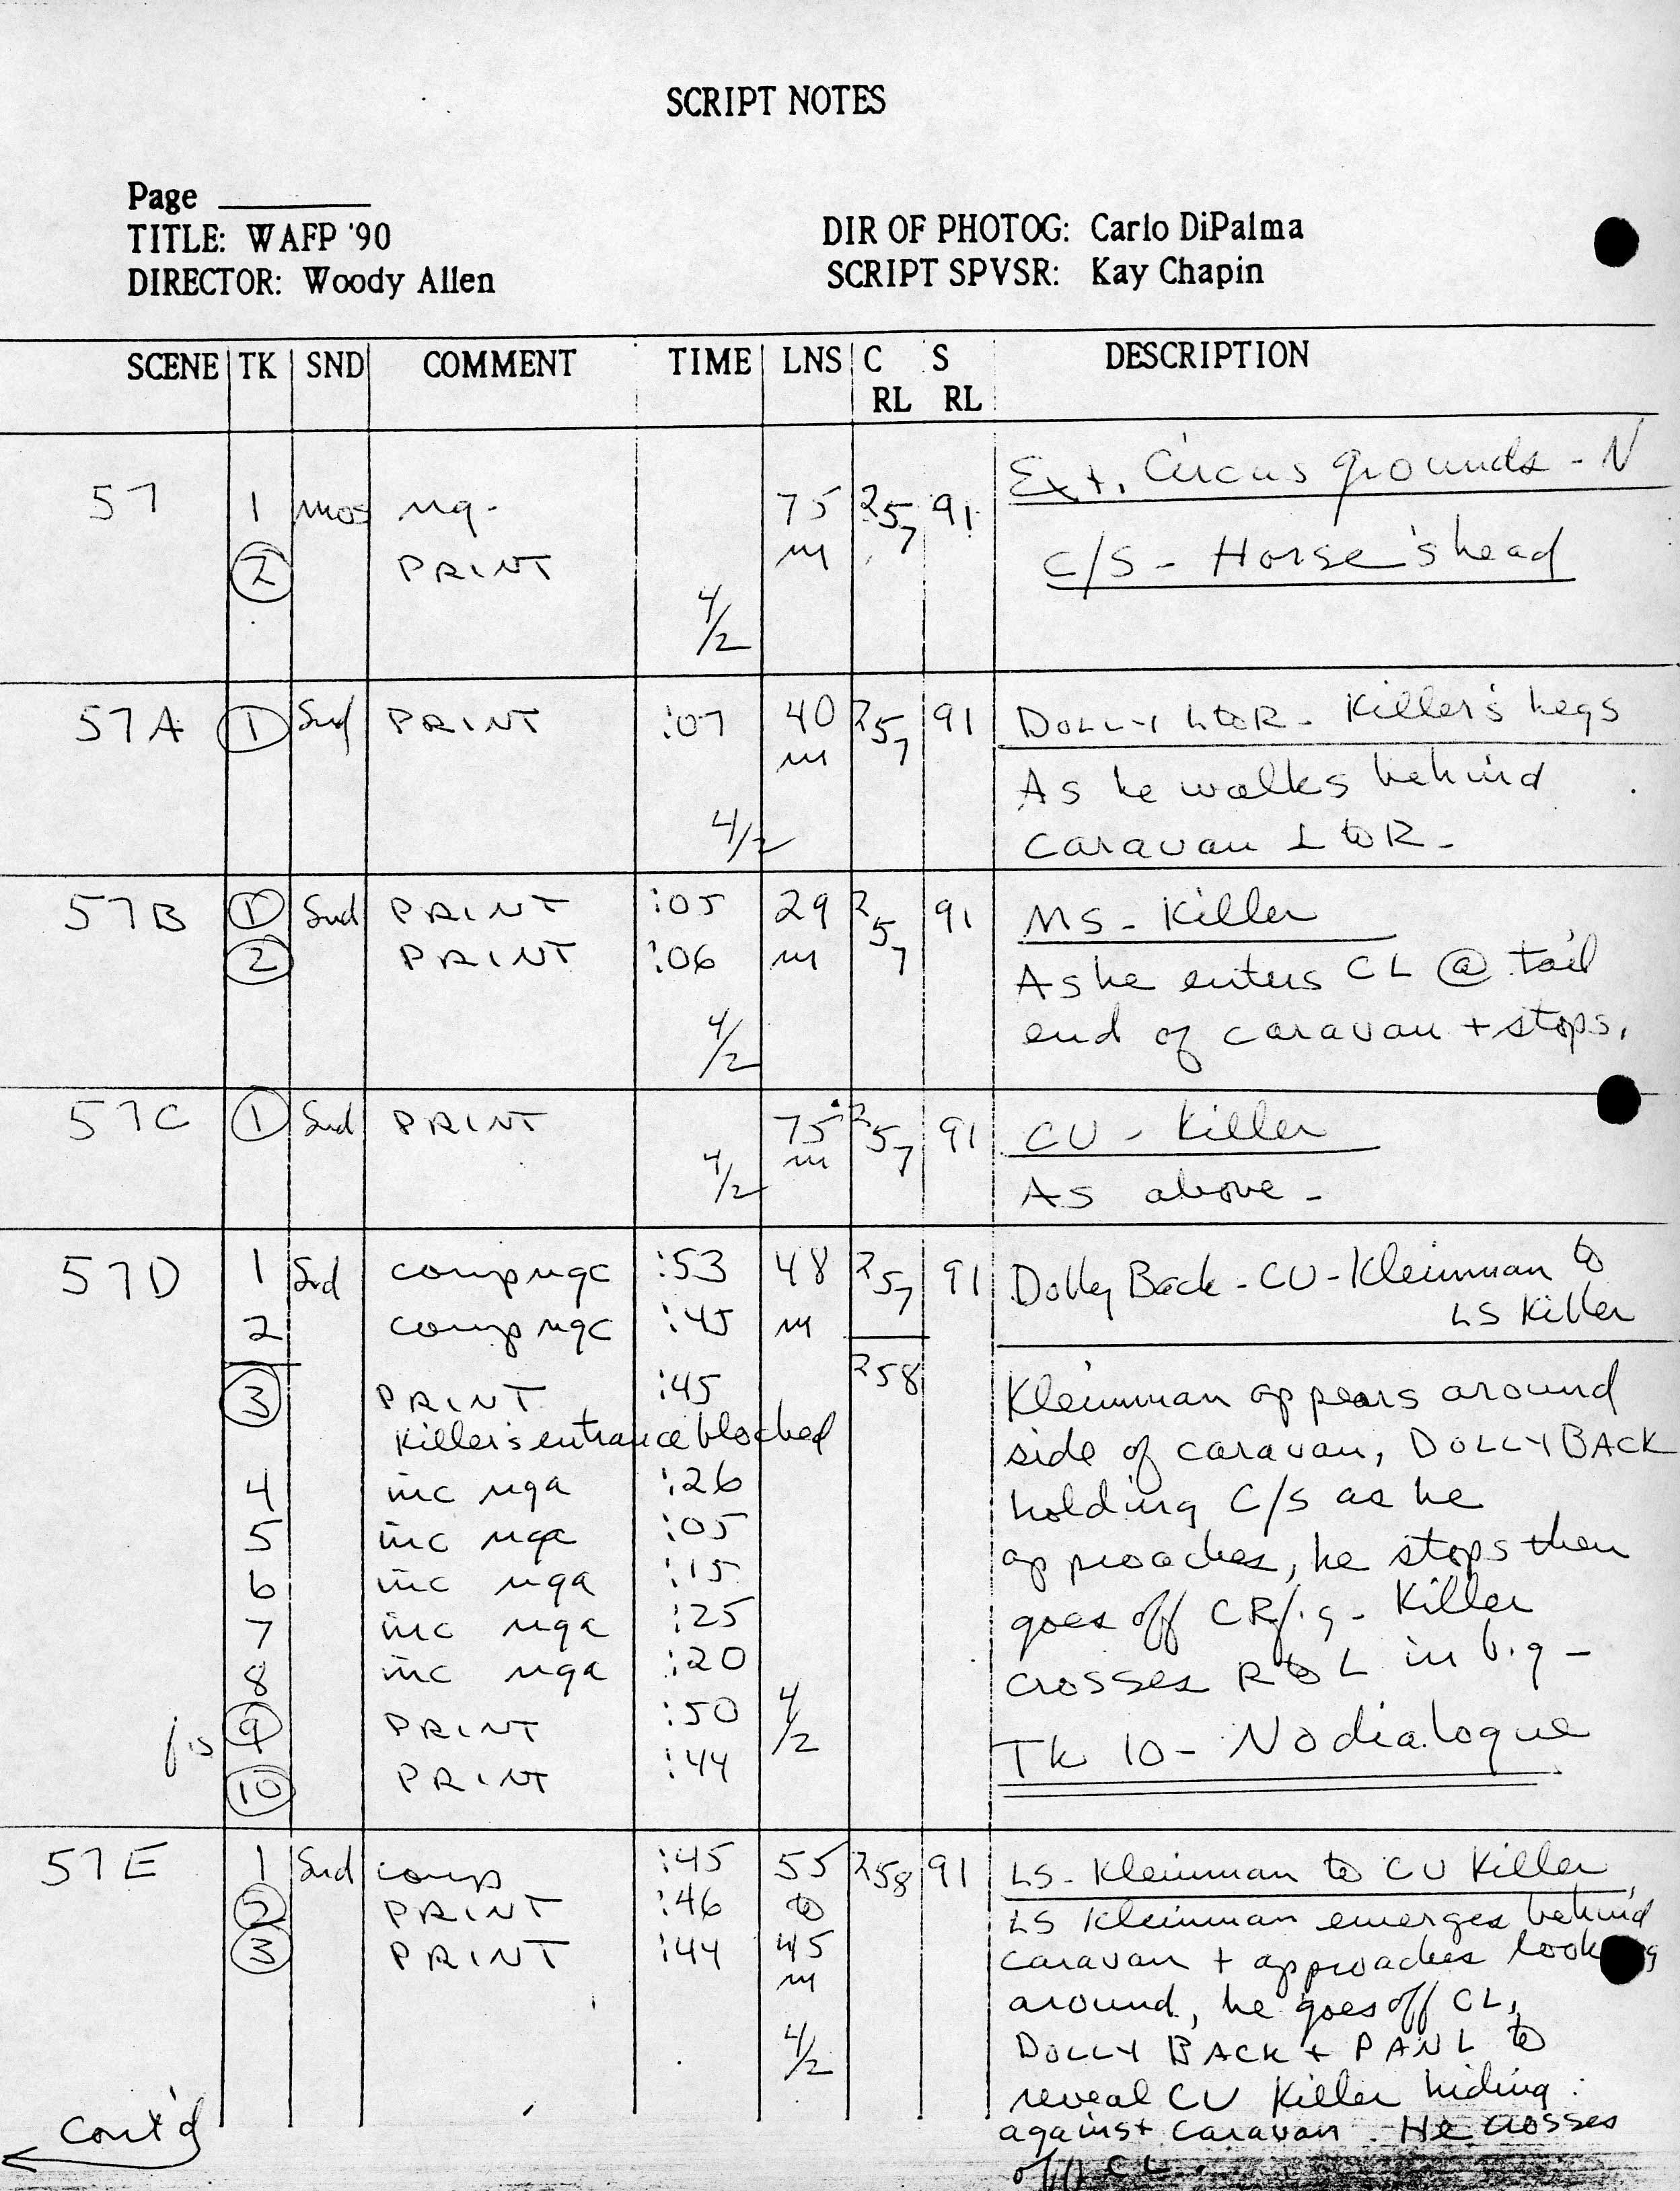 SCRIPT NOTES
Page
TITLE: WAFP '90
DIRECTOR: Woody Allen
DIR OF PHOTOG: Carlo DiPalma
SCRIPT SPVSR: Kay Chapin
SCENE TK SND COMMENT TIME LNS C RL S RL DESCRIPTION
57 1 MOS ng. 75 m 257 91 Ext. Circus grounds - N
2 PRINT C/S - Horse's head
4/2
57A 1 Snd PRINT :07 40 m 257 91 DOLLY L to R - Killer's Legs
As he walks behind
4/2 caravan L to R -
57B 1 Snd PRINT :05 29 m 257 91 MS - Killer
2 PRINT :06 As he enters CL @ tail
4/2 end of caravan + stops.
57C 1 Snd PRINT 75 m 257 91 CU - Killer
4/2 As above -
57D 1 Snd comp ngc :53 48 m 257 91 Dolly Back - CU - Kleinman to
LS Killer
2 comp ngc :45
3 PRINT :45 258 Kleinman appears around
Killer's entrance blocked side of caravan, DOLLY BACK
4 inc nga :26 holding C/S as he
5 inc nga :05 approaches, he stops then
6 inc nga :15 goes off CR f.g. Killer
7 inc nga :25 crosses R to L in b.g -
8 inc nga :20
9 PRINT :50 4/2 TK 10 - No dialogue
10 PRINT :44
57E 1 Snd comp :45 55 to 45 m 258 91 LS - Kleinman to CU Killer
2 PRINT :46 LS Kleinman emerges behind
3 PRINT :44 caravan + approaches looking
around, he goes off CL,
4/2 DOLLY BACK + PAN L to
reveal CU Killer hiding
against caravan. He crosses
off CL.
Cont'd